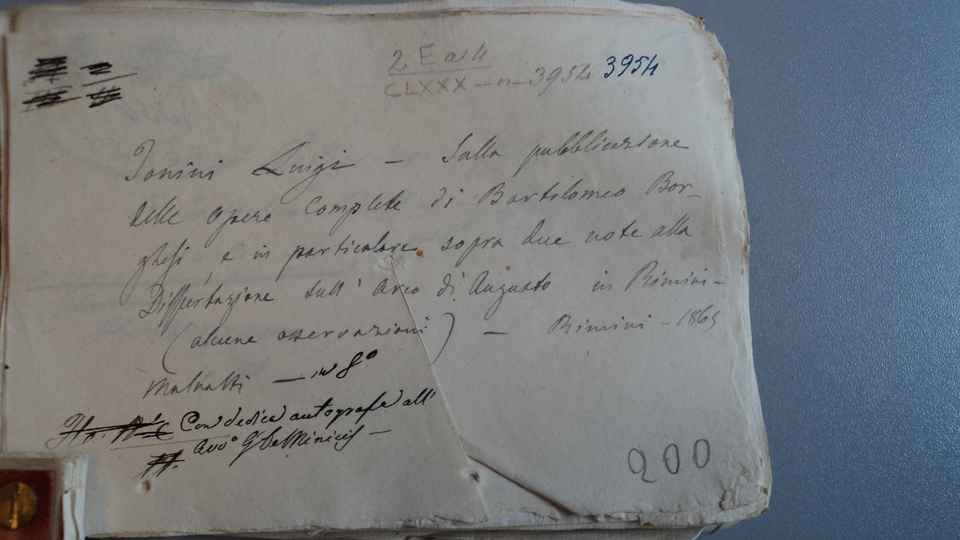 2 E a 4
CLXXX - n - 3954 3954
Tonini Luigi - Sulla pubblicazione
delle opere complete di Bartolomeo Bor-
ghesi, e in particolare sopra due note alla
Dissertazione sull' Arco di Augusto in Rimini -
(alcune osservazioni) - Rimini - 1865
Malvolti - in 8°
Con dedica autografa all'
Avv° G. De Minicis -
200